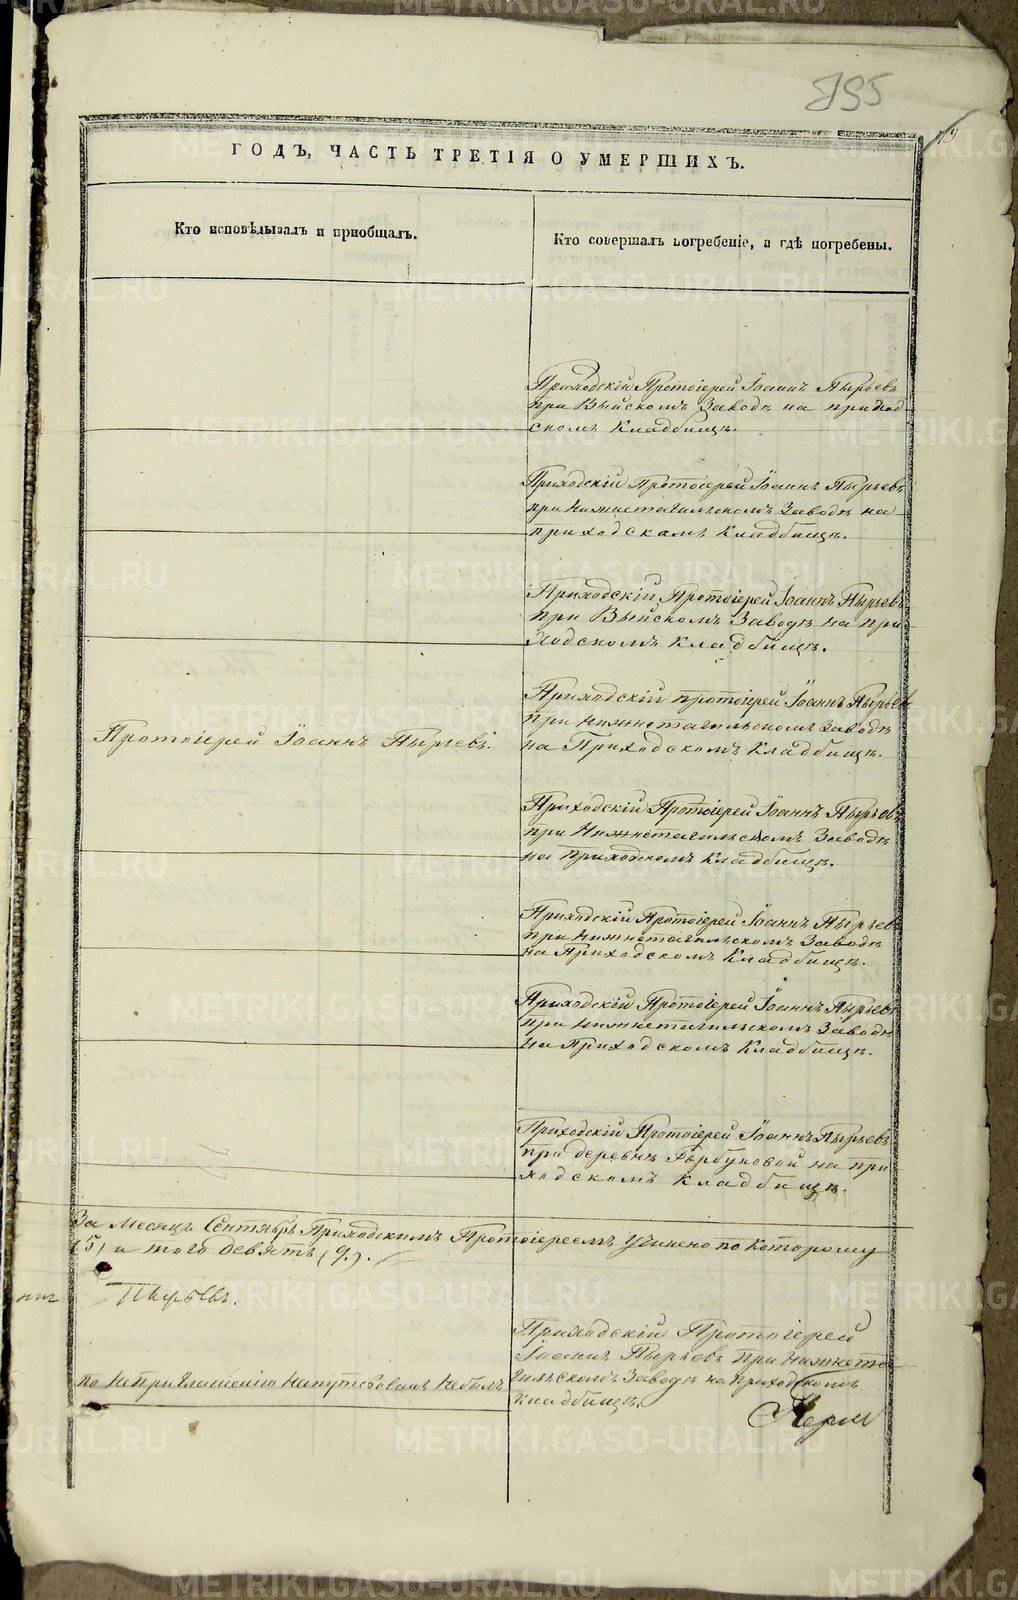 895
ГОДЪ, ЧАСТЬ ТРЕТІЯ О УМЕРШИХЪ.
Кто исповѣдывалъ и пріобщалъ.
Кто совершалъ погребеніе, и гдѣ погребены.
Приходскій Протоіерей Іоаннъ Пырьевъ
при Выйскомъ Заводѣ на приход
скомъ Кладбищѣ.
Приходскій Протоіерей Іоаннъ Пырьевъ
при Нижнетагильскомъ Заводѣ на
приходскомъ Кладбищѣ.
Приходскій Протоіерей Іоаннъ Пырьевъ
при Выйскомъ Заводѣ на при
ходскомъ Кладбищѣ.
Протоіерей Іоаннъ Пырьевъ.
Приходскій протоіерей Іоаннъ Пырьевъ
при Нижнетагильскомъ Заводѣ
на Приходскомъ Кладбищѣ.
Приходскій Протоіерей Іоаннъ Пырьевъ
при Нижнетагильскомъ Заводѣ
на приходскомъ Кладбищѣ.
Приходскій Протоіерей Іоаннъ Пырьевъ
при Нижнетагильскомъ Заводѣ
на Приходскомъ Кладбищѣ.
Приходскій Протоіерей Іоаннъ Пырьевъ
при Нижнетагильскомъ Заводѣ
на Приходскомъ Кладбищѣ.
Приходскій Протоіерей Іоаннъ Пырьевъ
при деревнѣ Горбуновой на при
ходскомъ Кладбищѣ.
За месяцъ Сентябрь Приходскимъ Протоіереемъ Учинено по которому
(5) и того девять (9.).
Пырьевъ.
Приходскій Протоіерей
Іоаннъ Пырьевъ при Нижнета
гильскомъ Заводѣ на приходскомъ
Кладбищѣ.
по неприглашенію напутствованъ небылъ
METRIKI.GASO-URAL.RU